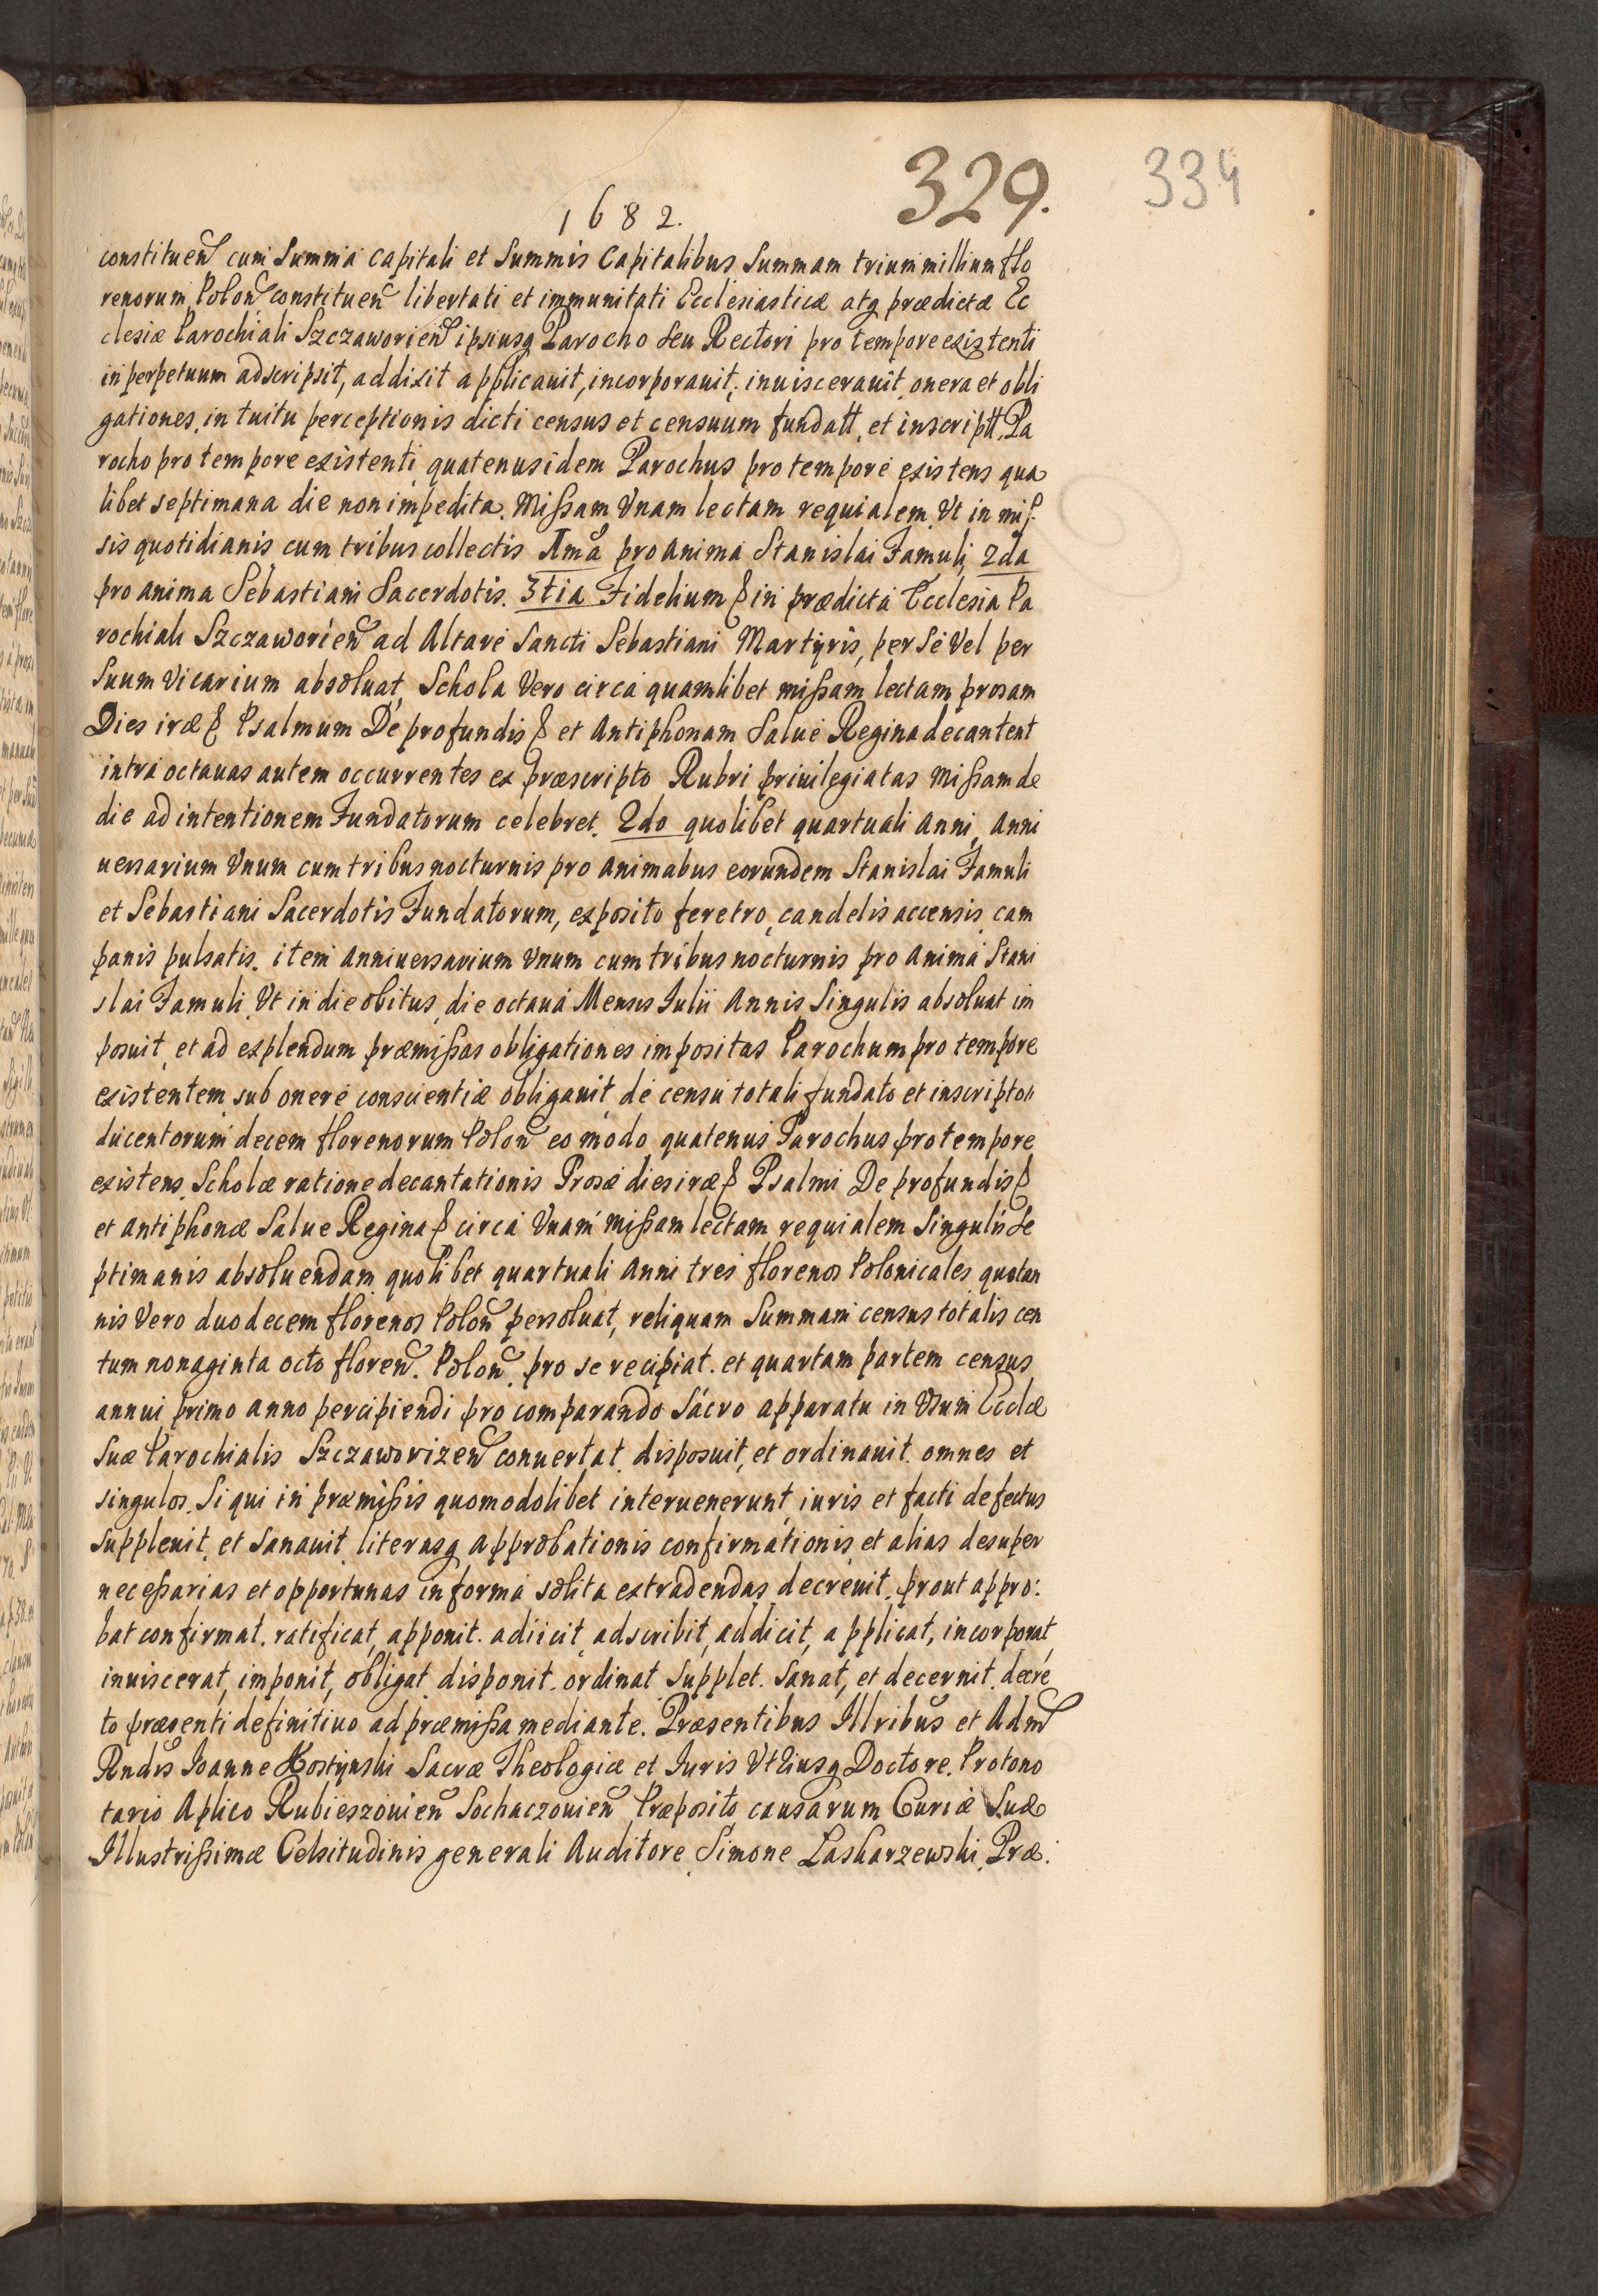 329.
334
1682.
constituen cum Summa capitali et Summis Capitalibus Summam trium millium flo
renorum Polon constituen libertati et immunitati Ecclesiasticæ atq prædictæ Ec
clesiæ Parochiali Szczaworien ipsiusq Parocho seu Rectori pro tempore existenti
in perpetuum adscripsit, addixit applicauit, incorporauit, inuiscerauit, onera et obli
gationes, in tuitu perceptionis dicti census et censuum fundatt, et inscriptt, Pa
rocho pro tempore existenti quatenus idem Parochus pro tempore existens qua
libet septimana die non impedita. Missam Vnam lectam requialem, Vt in mis
sis quotidianis cum tribus collectis Ima pro anima Stanislai Famuli, 2da
pro anima Sebastiani Sacerdotis. 3tia Fidelium & in prædicta Ecclesia Pa
rochiali Szczaworien ad Altare Sancti Sebastiani Martyris, per Se Vel per
Suum Vicarium absoluat, Schola Vero circa quamlibet missam lectam prosam
Dies iræ & Psalmum De profundis & et Antiphonam Salue Regina decantent
intra octauas autem occurrentes ex præscripto Rubri priuilegiatas Missam de
die ad intentionem Fundatorum celebret. 2do quolibet quartuali Anni, Anni
uersarium Vnum cum tribus nocturnis pro animabus eorundem Stanislai Famuli
et Sebastiani Sacerdotis Fundatorum, exposito feretro, candelis accensis, cam
panis pulsatis. item Anniuersarium Vnum cum tribus nocturnis pro anima Stani
slai Famuli, Vt in die obitus, die octaua Mensis Iulii Annis Singulis absoluat im
posuit, et ad explendum præmissas obligationes impositas Parochum pro tempore
existentem sub onere conscientiæ obligauit, de censu totali fundato et inscripto
ducentorum decem florenorum Polon eo modo quatenus Parochus pro tempore
existens Scholæ ratione decantationis Prosæ dies iræ & Psalmi De profundis &
et antiphonæ Salue Regina & circa Vnam missam lectam requialem Singulis Se
ptimanis absoluendam quolibet quartuali Anni tres florenos Polonicales quotan
nis Vero duodecem florenos Polon persoluat, reliquam Summam census totalis cen
tum nonaginta octo floren. Polon. pro se recipiat. et quartam partem census
annui primo anno percipiendi pro comparando Sacro apparatu in Vsum Ecclæ
Suæ Parochialis Szczaworizen conuertat disposuit, et ordinauit. omnes et
singulos, Si qui in præmissis quomodolibet interuenerunt, iuris et facti defectus
suppleuit, et Sanauit literasq approbationis confirmationis et alias desuper
necessarias et opportunas in forma solita extradendas decreuit. prout appro:
bat confirmat. ratificat, apponit. adiicit, adscribit, addicit, applicat, incorporat,
inuiscerat, imponit, obligat disponit. ordinat Supplet. Sanat, et decernit, decre
to præsenti definitiuo ad præmissa mediante. Præsentibus Illribus et Adm
Rndis Ioanne Kostynski Sacræ Theologiæ et Iuris Vtriusq Doctore. Protono
tario Aplico Rubieszouien Sochaczouien Præposito causarum Curiæ Suæ
Illustrissimæ Celsitudinis generali Auditore, Simone Laskarzewski, Præ.